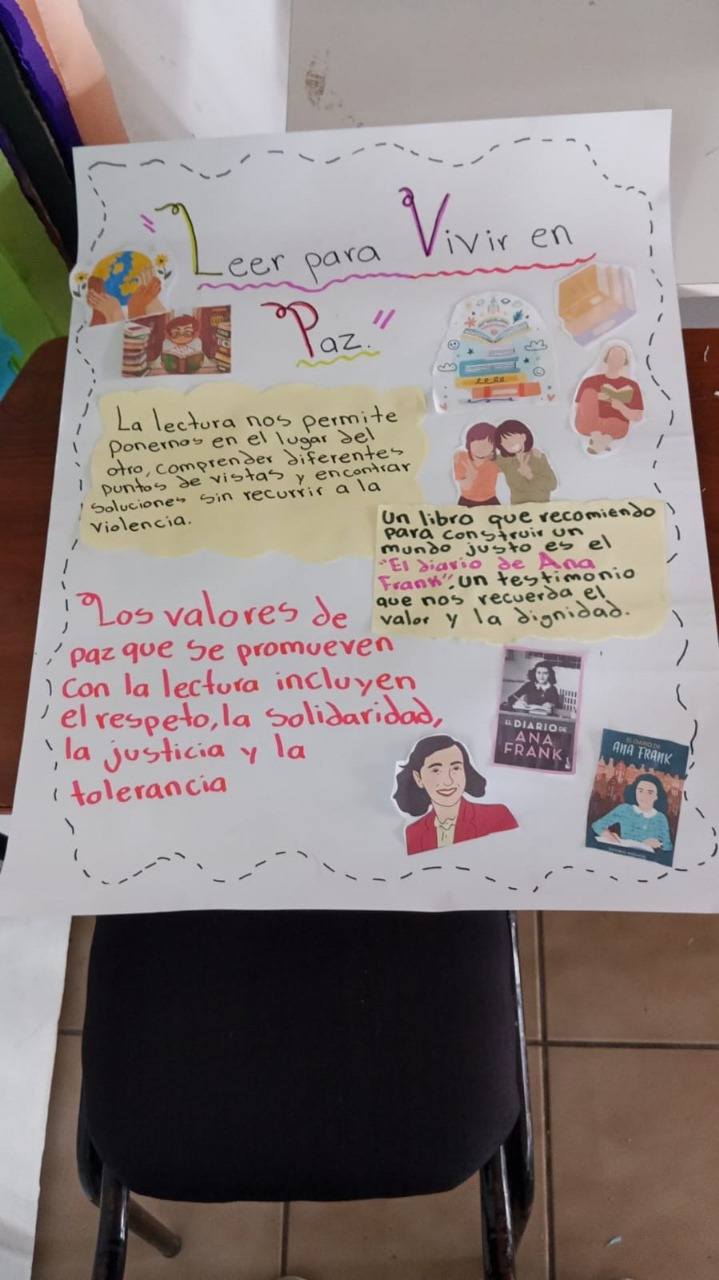 "Leer para Vivir en
Paz."
La lectura nos permite
ponernos en el lugar del
otro, comprender diferentes
puntos de vistas y encontrar
soluciones sin recurrir a la
violencia.
Un libro que recomiendo
para construir un
mundo justo es el
"El diario de Ana
Frank". un testimonio
que nos recuerda el
valor y la dignidad.
Los valores de
paz que se promueven
con la lectura incluyen
el respeto, la solidaridad,
la justicia y la
tolerancia
EL DIARIO DE
ANA
FRANK
EL DIARIO DE
ANA FRANK